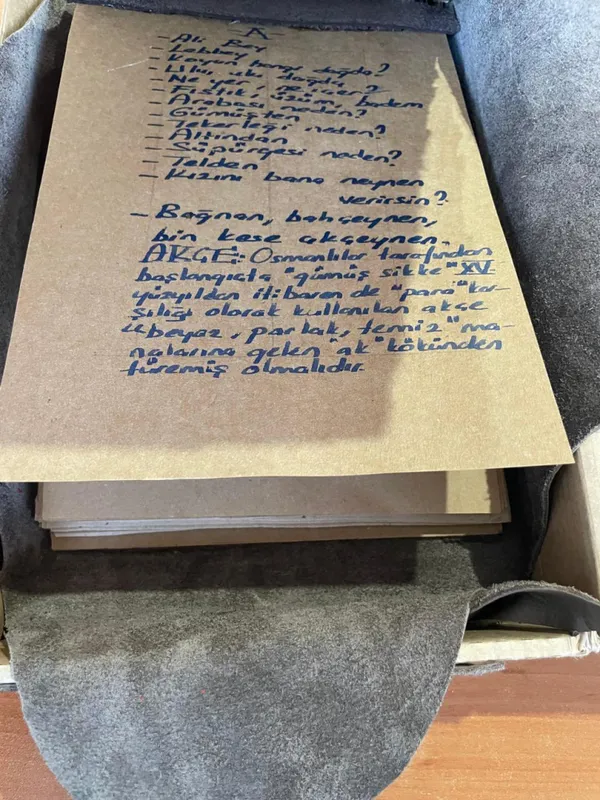 A
- Ali Bey
- Lebbey
- Koyun hangi dağda?
- Ulu ulu dağda
- Ne yer, ne içer?
- Fıstık, üzüm, badem
- Arabası neden?
- Gümüşten
- Tekerleği neden?
- Altından
- Süpürgesi neden?
- Telden
- Kızını bana neynen
verirsin?
- Bağnan, bahçeynen,
bin kese akçeynen.
AKÇE: Osmanlılar tarafından
başlangıçta "gümüş sikke" XV.
yüzyıldan itibaren de "para" kar-
şılığı olarak kullanılan akçe
"beyaz, parlak, temiz" ma-
nalarına gelen "ak" kökünden
türemiş olmalıdır.